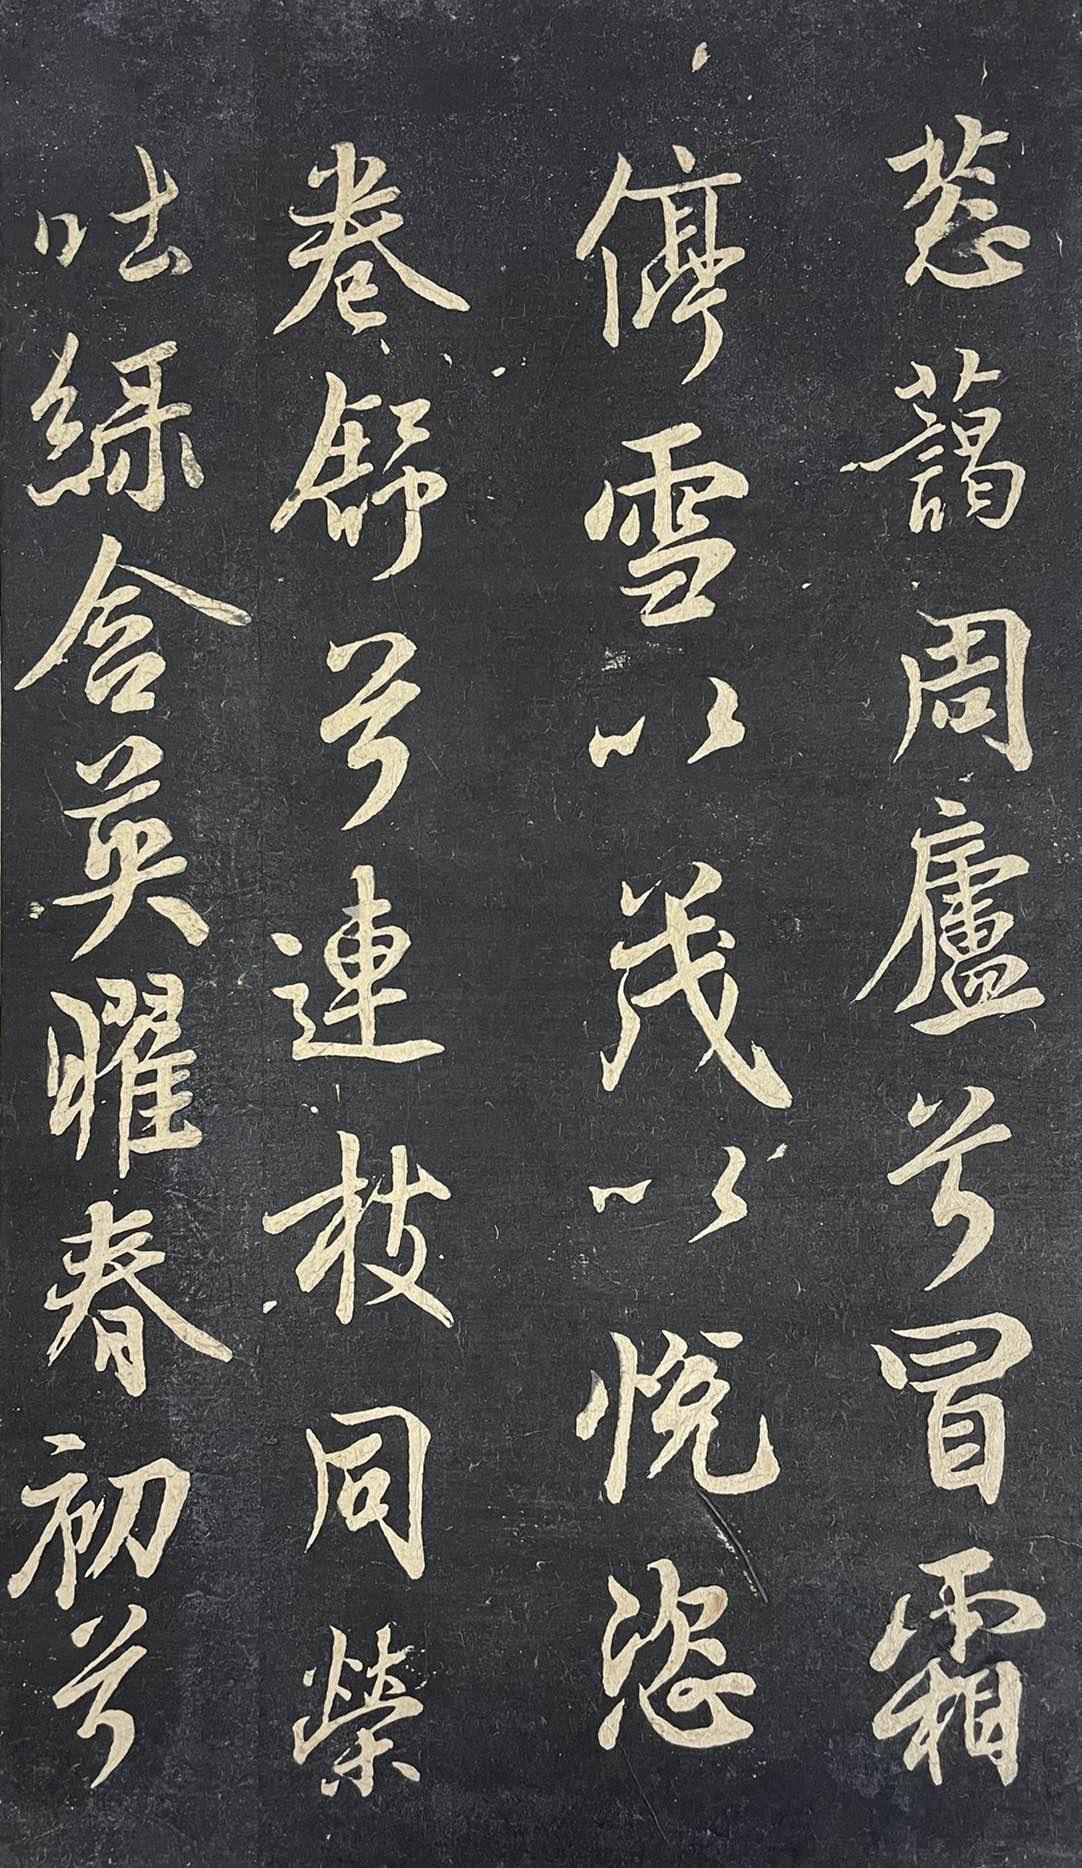 葱藹周廬兮冒霜
停雪以茂以悅恣
卷舒兮連枝同榮
吐綠含英曜春初兮